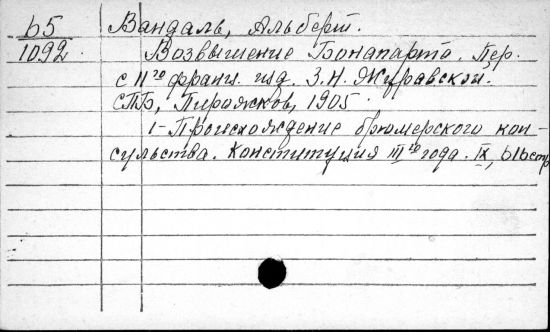 b5
1092
Вандаль, Альберт.
Возвышение Бонапарта. Пер.
с 11го франц. изд. З.Н. Журавской.
СПБ, Пирожков, 1905.
1 - Происхождение брюмерского кон-
сульства. Конституция III го года. IX, 616 стр